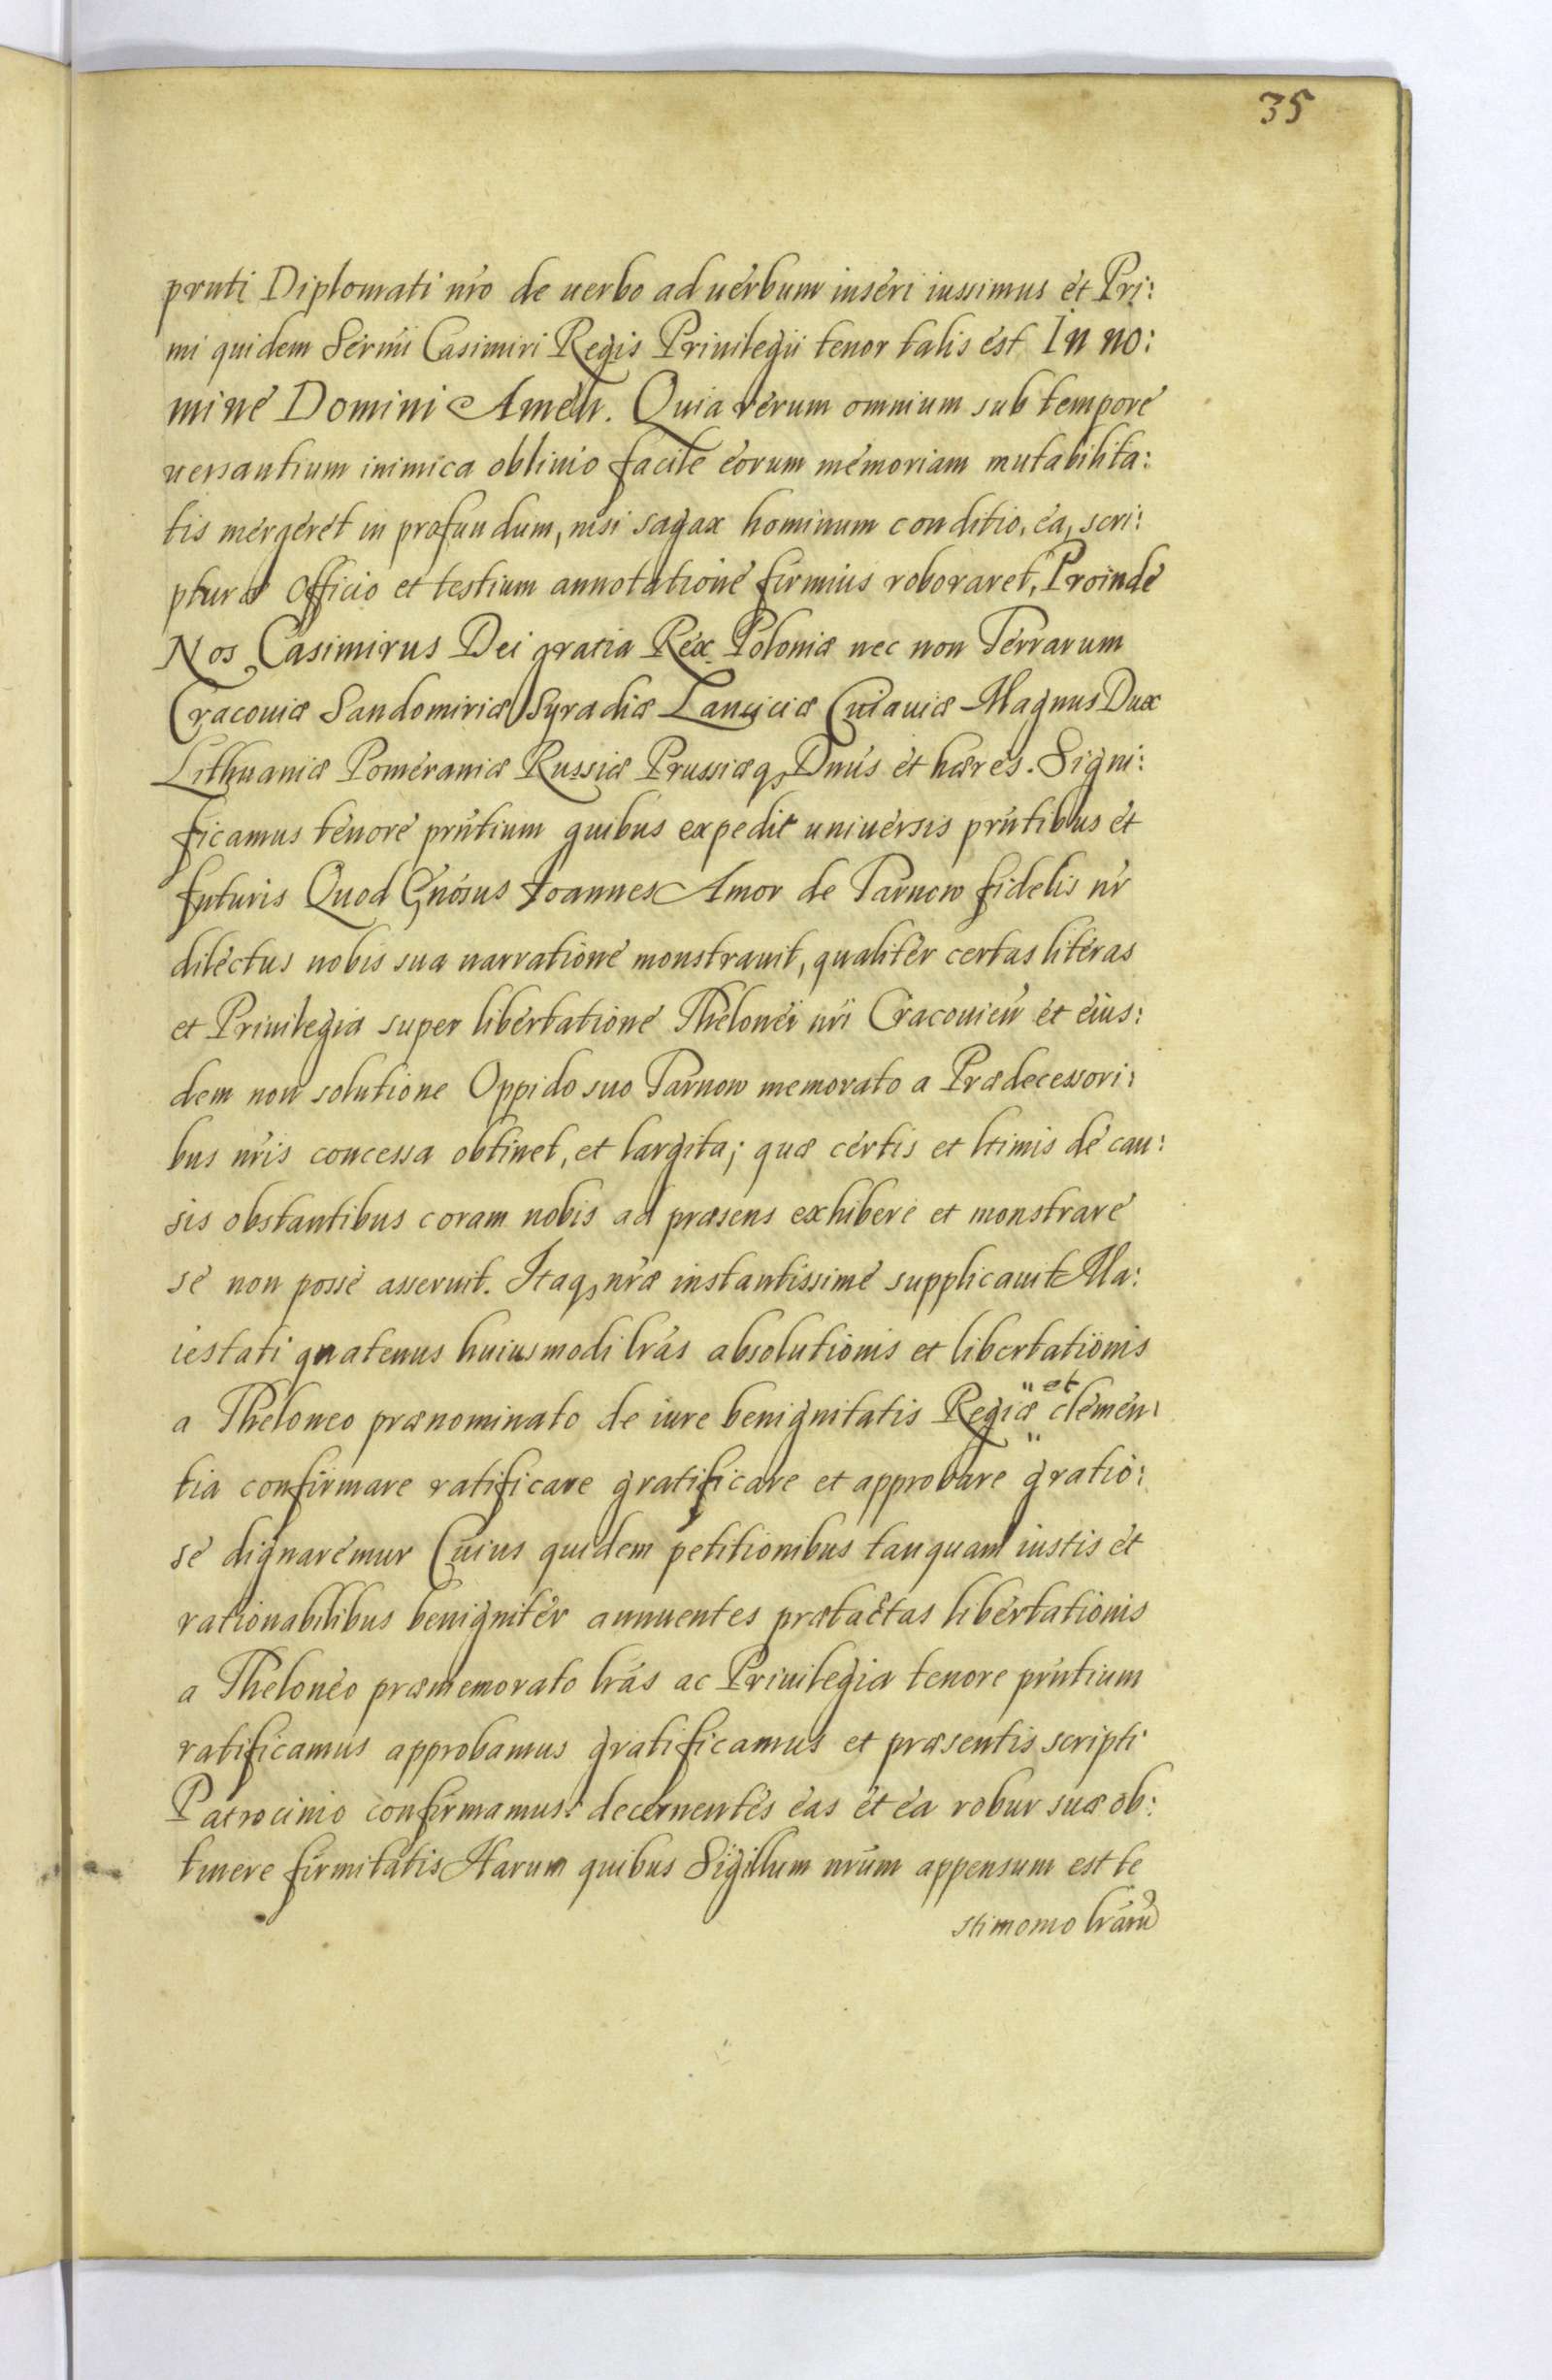 35
prnti Diplomati nro de uerbo ad uerbum inseri iussimus et Pri:
mi quidem Sermi Casimiri Regis Priuilegii tenor talis est In no:
mine Domini Amen. Quia rerum omnium sub tempore
uersantium inimica obliuio facile eorum memoriam mutabilita:
tis mergeret in profundum, nisi sagax hominum conditio, ea, scri:
pturæ officio et testium annotatione firmius roboraret, Proinde
Nos Casimirus Dei gratia Rex Poloniæ nec non Terrarum
Cracouiæ Sandomiriæ Syradiæ Lanciciæ Cuiauiæ Magnus Dux
Lithuaniæ Pomeraniæ Russiæ Prussiæq, Dnus et hæres. Signi:
ficamus tenore prntium quibus expedit uniuersis prntibus et
futuris Quod Gnosus Joannes Amor de Tarnow fidelis nr
dilectus nobis sua narratione monstrauit, qualiter certas literas
et Priuilegia super libertatione Thelonei nri Cracouien et eius:
dem non solutione Oppido suo Tarnow memorato a Prædecessori:
bus nris concessa obtinet, et largita; quæ certis et ltimis de cau:
sis obstantibus coram nobis ad præsens exhibere et monstrare
se non posse asseruit. Itaq, nræ instantissime supplicauit Ma:
iestati quatenus huiusmodi lras absolutionis et libertationis
a Theloneo prænominato de iure benignitatis Regiæ " et clemen:
tia confirmare ratificare gratificare et approbare gratio:
se dignaremur Cuius quidem petitionibus tanquam iustis et
rationabilibus benigniter annuentes prætactas libertationis
a Theloneo præmemorato lras ac Priuilegia tenore prntium
ratificamus approbamus gratificamus et præsentis scripti
Patrocinio confirmamus: decernentes eas et ea robur suæ ob:
tinere firmitatis Harum quibus Sigillum nrum appensum est te
stimonio lraru